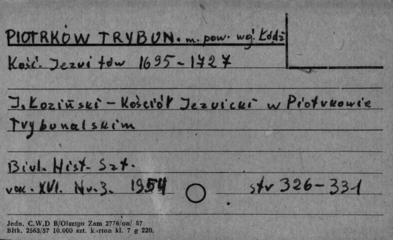 PIOTRKÓW TRYBUN. m. pow. woj. Łódź
Kość. Jezuitów 1695-1727
J. Łoziński - Kościół Jezuicki w Piotrkowie
Trybunalskim
Biul. Hist. Szt.
rok. XVI. Nr. 3. 1954 str 326-331
Jedn. C.W,D B/Olsztyn Zam 2776/on/ 57
Bltk. 2563/57 10.000 szt. karton kl. 7 g 220.